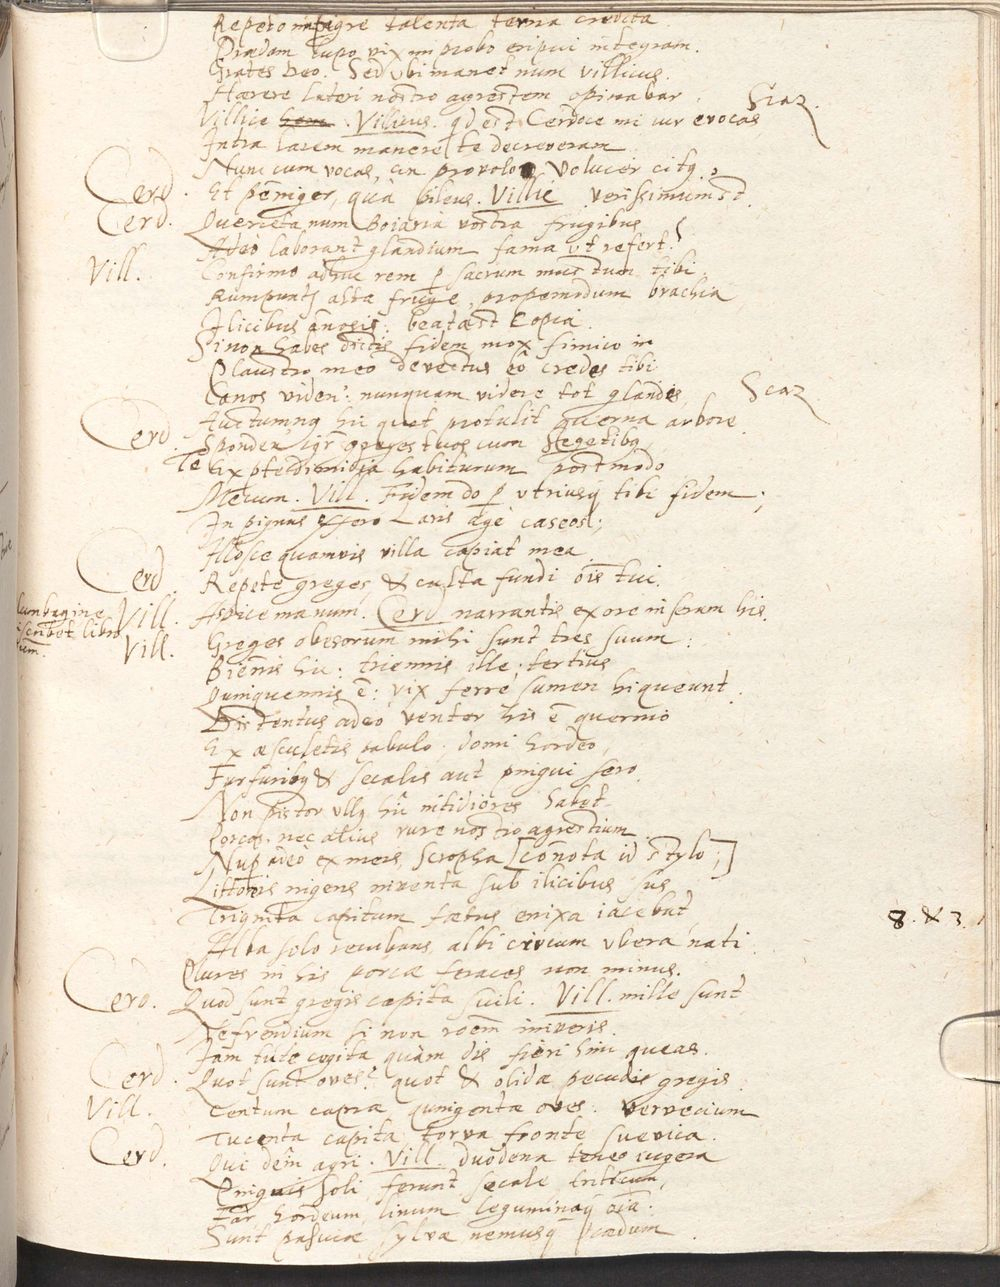 Repeto integre talenta terna credita.
Prædam lupo vix improbo eripui integram.
Grates Deo. Sed ubi manet num villicus.
Hærere lateri nostro agrestem opinabar
Villice . Villicus. qd est Cerdoce mi cur evocas
Scaz.
Intra larem manere te decreveram
Nunc cum vocas, en provolo volucer citq
Cerd. Et penniger, quà pileus. Villic verissimum st
Cerd. Querceta num Boiaria vostra frugibus
Adeo laborant glandium fama ut refert?
Vill. Confirmo adhuc rem p sacrum tibi
Rumpunt alta fruge, propemodum brachia
Ilicibus annosis: beata st Copia.
Si non habes dictis fidem mox fimico in
Plaustro meo devectus eo credes tibi
Canos viden: nunquam videre tot glandes
Scaz
Cerd Auctumnq hic quot protulit querna arbore.
Sponden igr greges tuos cum segetibq
Te Ex habiturum postmodo
Mecum. Vill. Fidem do p utriusq tibi fidem;
In pignus offero Laris age caseos;
Illosce quamvis villa capiat mea
Cerd Repete greges, & culta fundi ois tui.
Vill. Aspice manum. Cerd narrantis ex ore inseram his.
scribet libro
Vill. Greges obesorum mihi sunt tres suum:
Biennis hic: triennis ille. tertius
Quinquennis e: vix ferre sumen hi queunt.
Distentus adeo venter his e querno
Ex æsculetis pabulo. domi hordeo,
Furfuribq & secalis aut pingui sero.
Non pistor ullq hic nitidiores habet
Porcos. nec alius rure nostro agrestium.
Nup adeo ex meis scropha [connota id stylo;]
Littoreis ingens inventa sub ilicibus sus
Triginta capitum fœtus enixa iacebat
8. & 3.
Alba solo recubans, albi circum ubera nati.
Plures in his porcæ feraces non minus.
Cerd. Quod sunt gregis capita suili. Vill. mille sunt
Nefrendium si non roem iniveris.
Iam tute cogita quàm dis fieri hinc queas.
Cerd. Quot sunt oves? quot & olidæ pecudis gregis
Vill. Centum capræ quingentæ oves. vervecium
Tucenta capita, torva fronte suevica.
Cerd. Qui dein agri. Vill duodena teneo iugera
Pinguis soli, ferunt secale triticum,
Far, hordeum, linum leguminaq oia.
Sunt pascuæ sylvæ nemusq cæduum